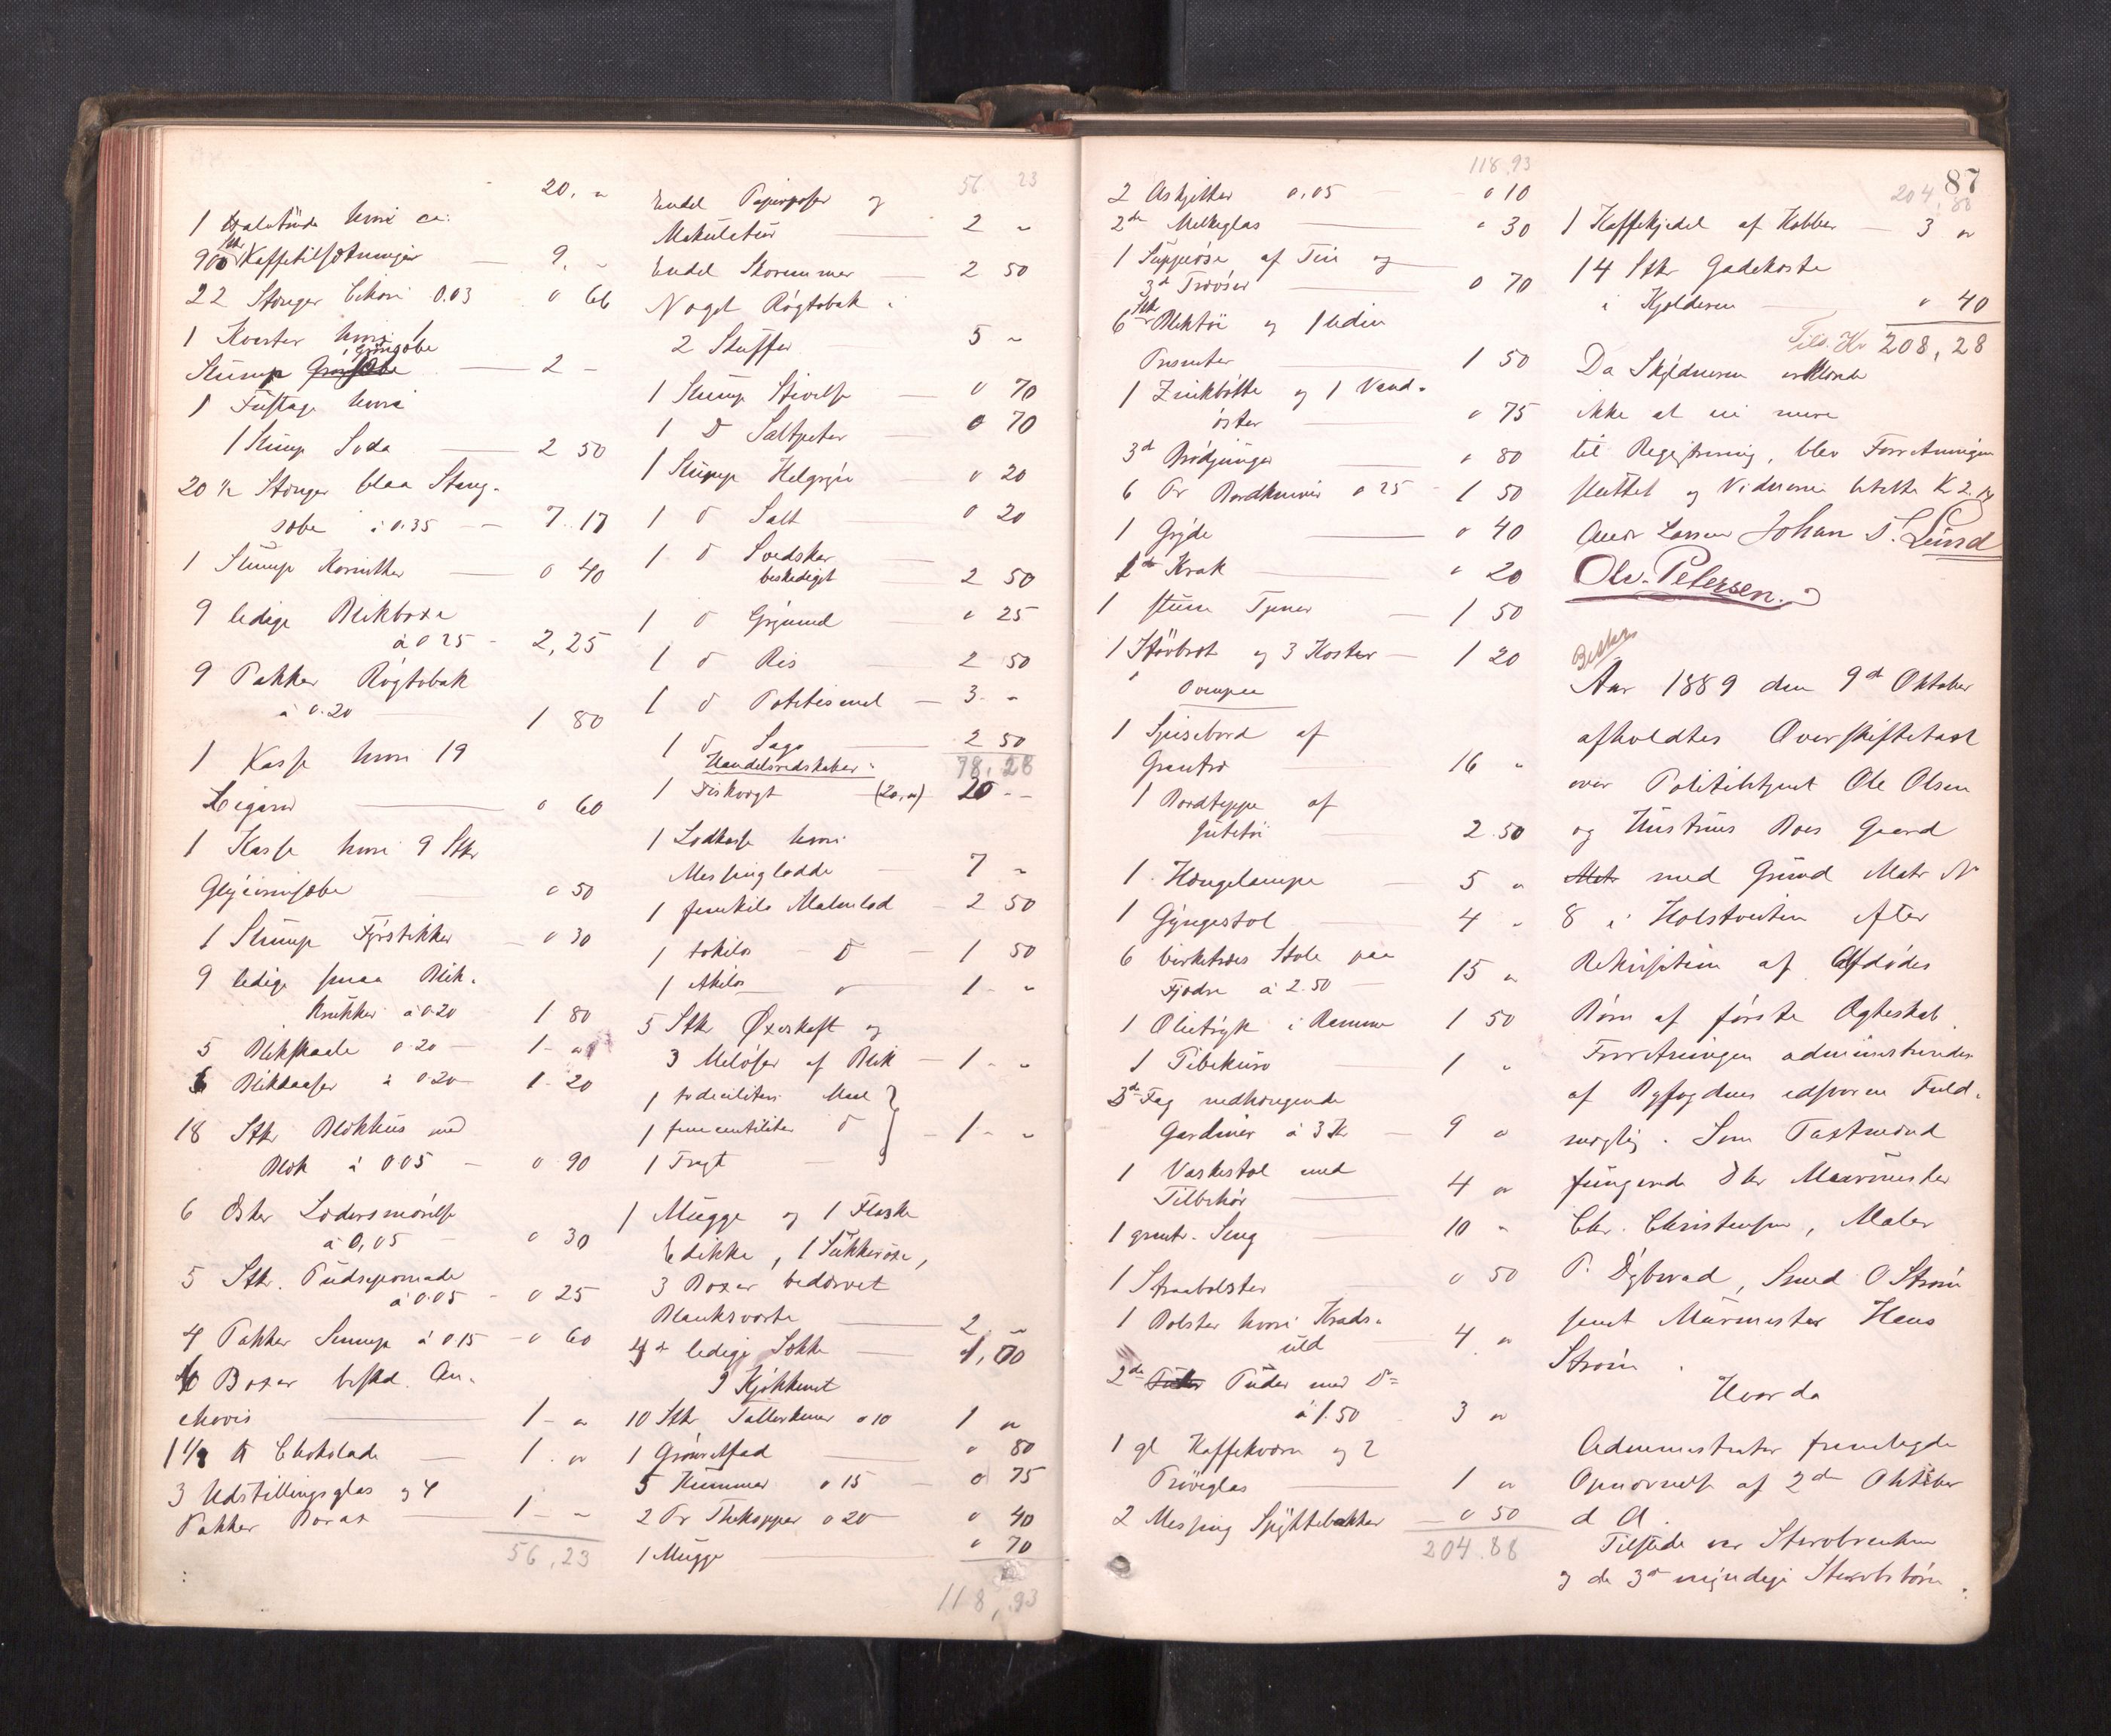 20. "
1 Halvtønde hvori ca:
900 Stkr Kaffetilsætninger — 9. "
22 Stænger Cikori 0.03 " 66
1 Kvarter hvori 1
Slump grønsæbe — 2 -
1 Fustage hvori
1 Slump Soda — 2 50
20 1/2 Stænger blaa Stang-
sæbe à 0.35 — 7. 17
1 Slump Korinther — 0 40
9 ledige Blikboxe
à 0 25 - 2,25
9 Pakker Røgtobak
à 0.20 — 1 80
1 Kasse hvori 19
Cigarer — 0 60
1 Kasse hvori 9 Stkr
Glycerinsæbe — 0 50
1 Slump Fyrstikker — 0 30
9 ledige smaa Blik-
krukker à 0.20 1 80
5 Blikskaale 0.20 — 1 - "
6 Blikdaaser à 0.20 1. 20
18 Stkr Blækhus med
Blæk à 005 — 0 90
6 Æsker Lædersmørelse
à 0,05 - 0 30
5 Stkr. Pudsepomade
à 0.05 - 0 25
4 Pakker Sennep à 0 15 - 0 60
6 Boxer beskd. An-
chovis — 1 - "
1 1/2 ℔ Chokolade — 1. "
3 Udstillingsglas og 4
Pakker Borax — 1 - "
56,23
56. 23
Endel Papirposer og
Makulatur — 2 "
Endel Storemmer — 2 50
Noget Røgtobak i
2 Skuffer — 5 "
1 Slump Stivelse — 0 70
1 D Saltpeter — 0 70
1 Slump Helgryn — 0 20
1 D Salt 0 20
1 D Svedsker
beskadiget 2 50
1 D Grynmel 0 25
1 D Ris 2 50
1 D Potetesmel — 3 - "
1 D Sago — 2 50
Handelsredskaber: 78,28
1 Diskvægt (20,") 20 - -
1 Lodkasse hvori
Messinglodde — 7 "
1 femkilo Malmlod — 2 50
1 tokilos D — 1 50
1 1kilos D 1 - "
5 Stkr Øxeskaft og
3 Meløser af Blik — 1 - "
1 todeciliters Maal
1 femcentiliter D — 1 - "
1 Tragt —
1 Mugge og 1 Flaske
Edikke, 1 Sukkerøse,
3 Boxer bedærvet
Blanksværte — 2 "
4 d ledige Sække — 1,00
I Kjøkkenet
10 Stkr Tallerkener 0 10 1 "
1 Grønsetfad — 0 80
5 Kummer 0 15 — 0 75
2 Pr Thekopper 0 20 0 40
1 Mugge — 0 70
118,93
118,93
2 Askjetter 0,05 — 0 10
2 de Melkeglas — " 30
1 Suppeøse af Tin og
3 d Træøser — 0 70
6 Stkr Bliktøi og 1 liden
1 50
1 Zinkbøtte og 1 Vand-
øser — 0 75
3 d Brødjunger — " 80
6 Pr Bordknive 0 25 - 1 50
1 Gryde — " 40
1 d Krak — " 20
1 stum Tjener — 1 50
1 Støvbræt og 3 Koster — 1 20
Ovenpaa
1 Spisebord af
Grantræ — 16 "
1 Bordteppe af
Jutetøi — 2.50
1 Hængelampe — 5 "
1 Gyngestol — 4 "
6 birketræs Stole paa
Fjædre à 2.50 — 15 "
1 Olietryk i Ramme 1 50
1 Pibekurv — 1 "
3 de Fag nedhængende
Gardiner à 3 Kr — 9 "
1 Vaskestol med
Tilbehør — 4 "
1 grantr. Seng — 10 "
1 Straabolster — 0 50
1 Bolster hvori Krads-
uld 4 "
2 de Puder med D=
à 1.50 - 3 "
1 gl Kaffekværn og 2
Prøveglas — 1 "
2 Messing Spyttebakker — 0 50
204.88
87
204,88
1 Kaffekjedel af Kobber — 3 "
14 Stkr Gadekoste
i Kjelderen — 0 40
Tils. Kr 208,28
Da Skyldneren erklærede
ikke at eie mere
til Registrering, blev Forretningen
sluttet og Vidnerne betalte Kr 2.
Andr Larsen Johan S. Lund
Olv. Petersen.
Aar 1889 den 9 d Oktober
afholdtes Overskiftetaxt
over Politibetjent Ole Olsen
og Hustrues Boes Gaard
Matr med Grund Matr No
8 i Holstveiten efter
Rekvisition af Afdødes
Børn af første Ægteskab.
Forretningen administreredes
af Byfogdens edsvorne Fuld-
mægtig. Som Taxtmænd
fungerede DHr Murmester
Chr. Christensen, Maler
P. Dybvad, Smed O Strøm
samt Murmester Hans
Strøm.
Hvorda
Administrator fremlagde
Opnævnelse af 2 den Oktober
d A.
Tilstede var Stervboenken
og de 3 d myndige Stervbobørn.